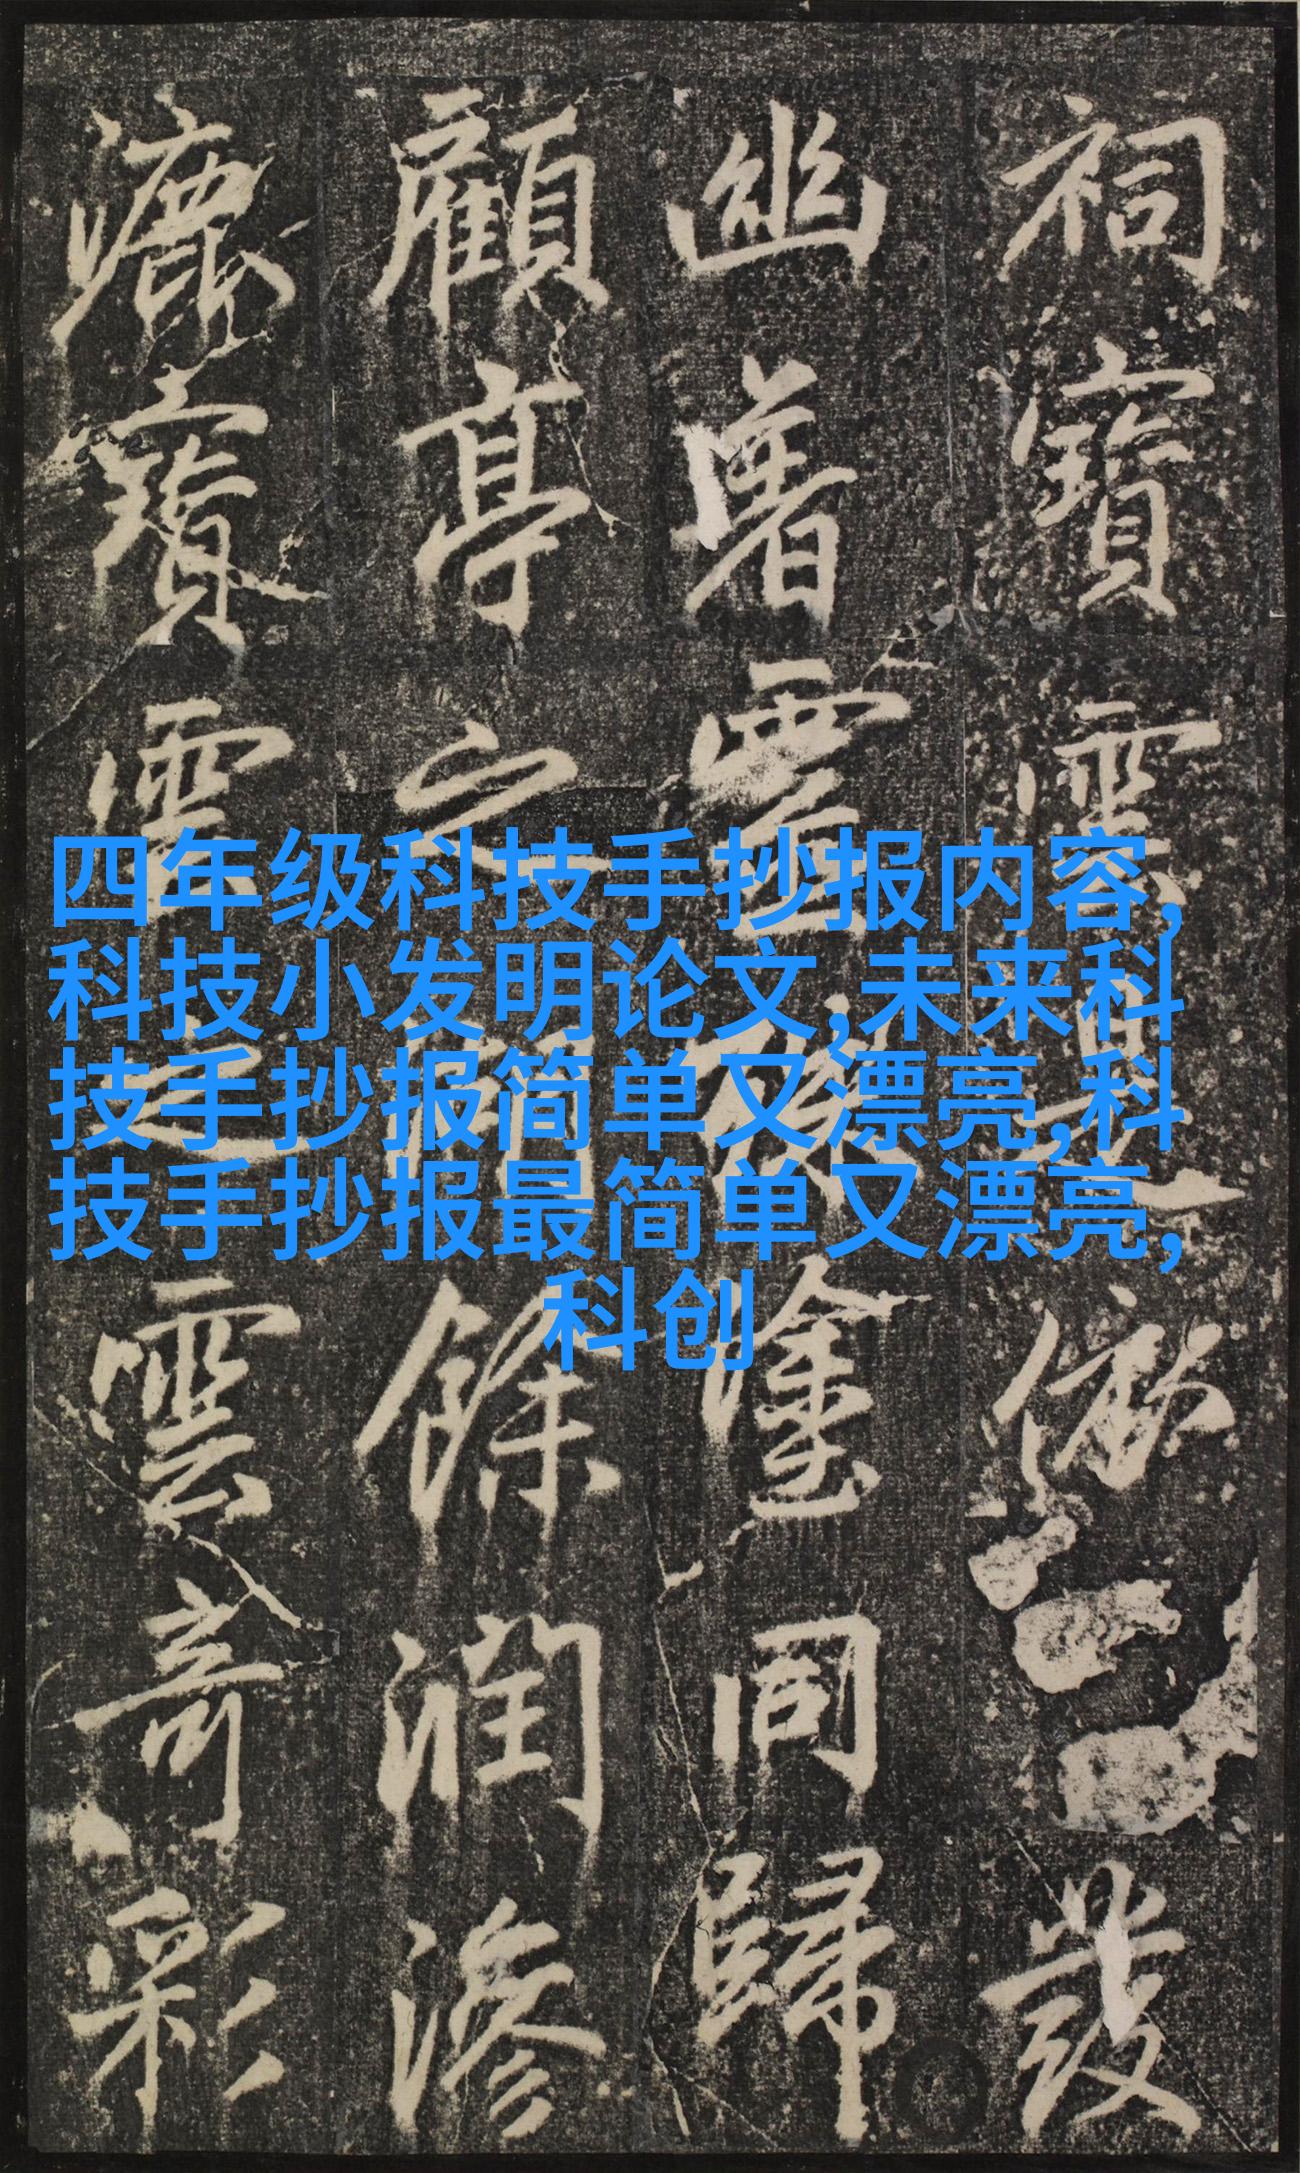 四年级科技手抄报内容,
科技小发明论文,未来科
技手抄报简单又漂亮,科
技手抄报最简单又漂亮,
科创
祠寶雲俯發
幽靈塗同歸
顧亭之餘潤滲
漉寶雲之雲奇彩